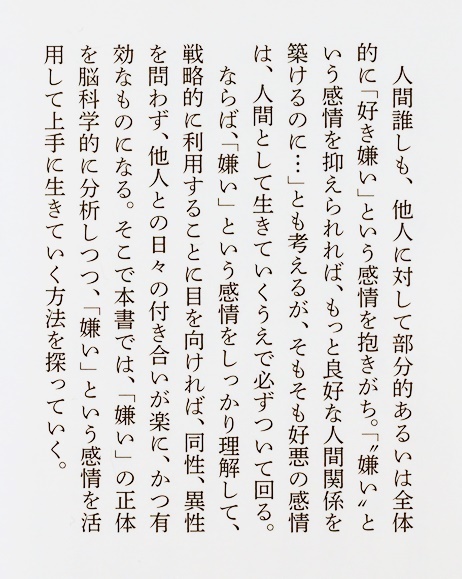 人間誰しも、他人に対して部分的あるいは全体
的に「好き嫌い」という感情を抱きがち。「〝嫌い〟と
いう感情を抑えられれば、もっと良好な人間関係を
築けるのに…」とも考えるが、そもそも好悪の感情
は、人間として生きていくうえで必ずついて回る。
　ならば、「嫌い」という感情をしっかり理解して、
戦略的に利用することに目を向ければ、同性、異性
を問わず、他人との日々の付き合いが楽に、かつ有
効なものになる。そこで本書では、「嫌い」の正体
を脳科学的に分析しつつ、「嫌い」という感情を活
用して上手に生きていく方法を探っていく。